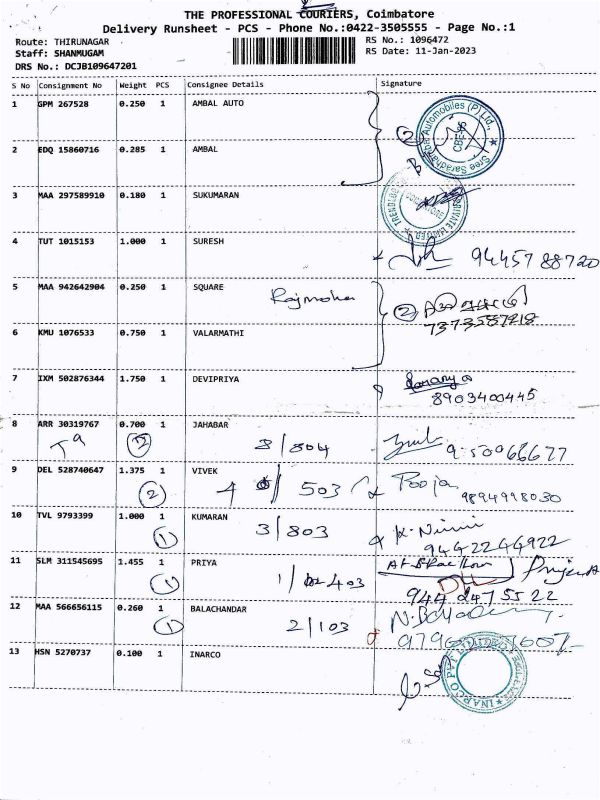 THE PROFESSIONAL COURIERS, Coimbatore
Delivery Runsheet - PCS - Phone No.:0422-3505555 - Page No.:1
Route: THIRUNAGAR RS No.: 1096472
Staff: SHANMUGAM RS Date: 11-Jan-2023
DRS No.: DCJB109647201
S No Consignment No Weight PCS Consignee Details Signature
1 GPM 267528 0.250 1 AMBAL AUTO
2 EDQ 15860716 0.285 1 AMBAL
3 MAA 297589910 0.180 1 SUKUMARAN
4 TUT 1015153 1.000 1 SURESH
9445788720
5 MAA 942642904 0.250 1 SQUARE
Rajmohan 2
7373587218
6 KMU 1076533 0.750 1 VALARMATHI
7 IXM 502876344 1.750 1 DEVIPRIYA
8903400445
8 ARR 30319767 0.700 1 JAHABAR
3/804
9 DEL 528740647 1.375 1 VIVEK
2 4 503 Pooja
9894998030
10 TVL 9793399 1.000 1 KUMARAN
1 3/803 K. Nimmi
9442244922
11 SLM 311545695 1.455 1 PRIYA
1 403
12 MAA 566656115 0.260 1 BALACHANDAR
1 2/103
13 HSN 5270737 0.100 1 INARCO